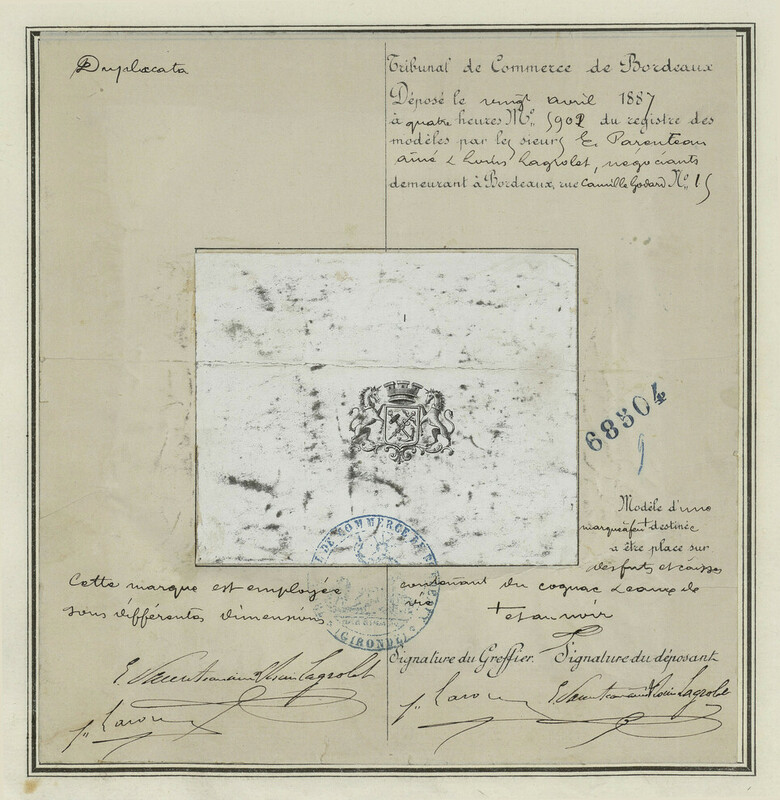 Duplicata
Tribunal de Commerce de Bordeaux
Déposé le vingt avril 1887
à quatre heures Nº 5902 du registre des
modèles par les sieurs E. Parenteau
ainé & Louis Lagrolet, négociants
demeurant à Bordeaux, rue Camille Godard Nº 15
68504
9
Modèle d'une
marque à feu + destinée
a être place sur
des futs et caisses
contenant du cognac & eaux de
vie
+ et au noir
Cette marque est employée
sous différentes dimensions
DE COMMERCE DE B
(GIRONDE)
Signature du Greffier. Signature du déposant
Lagrolet
Lagrolet